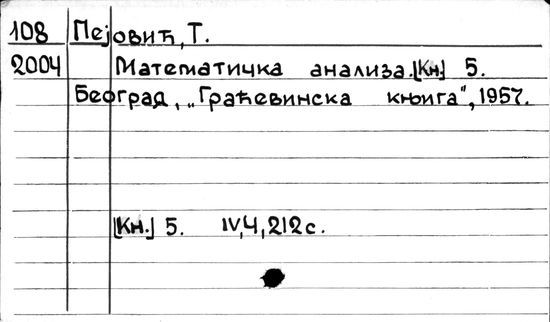 108 Пејовић, Т.
2004 Математичка анализа. [Кн.] 5.
Београд, „Граћевинска књига", 1957.
[Кн.] 5. IV, Ч, 212 с.